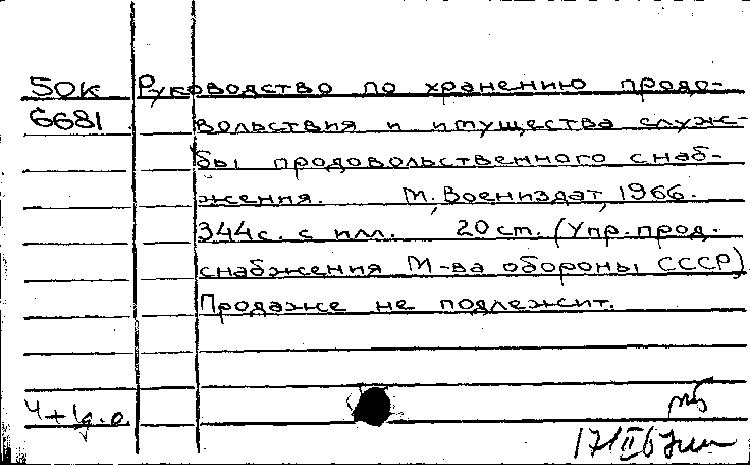 50к Руководство по хранению продо-
6681 вольствия и имущества служ-
бы продовольственного снаб-
жения. М., Воениздат, 1966.
344с. с илл. 20 ст. (Упр. прод.
снабжения М-ва обороны СССР)
Продаже не подлежит.
4+1д.о